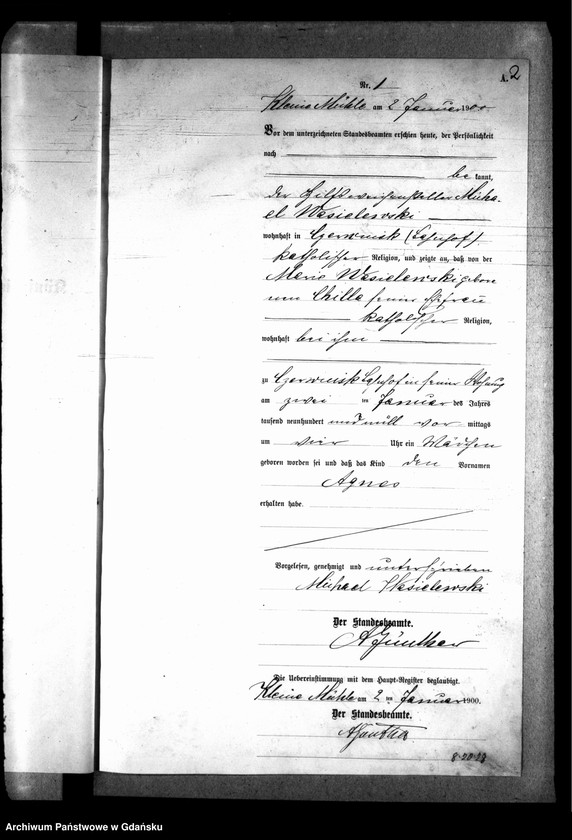 A. 2
Nr. 1
Kleine Mühle am 2 Januar 1900
Vor dem unterzeichneten Standesbeamten erschien heute, der Persönlichkeit
nach
be kannt,
der Hilfsweichensteller Micha-
el Wesielewski
wohnhaft in Czerwinsk (Bahnhof)
katholischer Religion, und zeigte an, daß von der
Marie Wesielewski gebore-
nen Chille seiner Ehefrau
katholischer Religion,
wohnhaft bei ihm
zu Czerwinsk Bahnhof in seiner Wohnung
am zwei ten Januar des Jahres
tausend neunhundert und null vor mittags
um vier Uhr ein Mädchen
geboren worden sei und daß das Kind den Vornamen
Agnes
erhalten habe.
Vorgelesen, genehmigt und unterschrieben
Michael Wesielewski
Der Standesbeamte.
A Günther
Die Uebereinstimmung mit dem Haupt-Register beglaubigt.
Kleine Mühle am 2 ten Januar 1900.
Der Standesbeamte.
A Günther
Archiwum Państwowe w Gdańsku